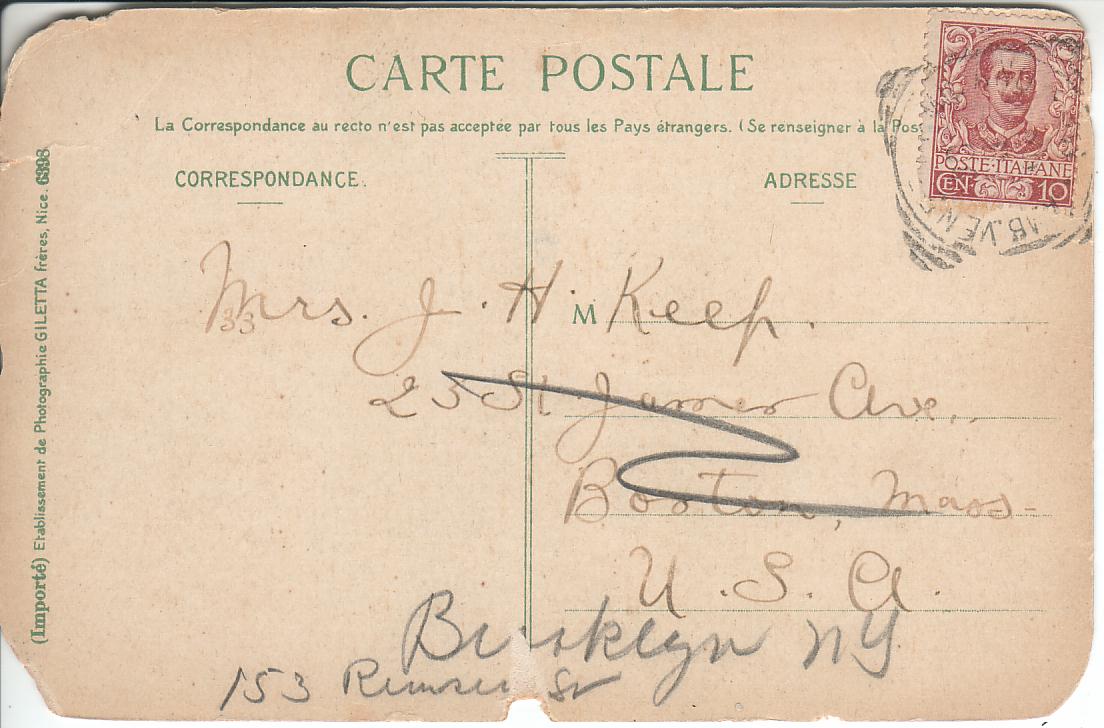 CARTE POSTALE
La Correspondance au recto n'est pas acceptée par tous les Pays étrangers. (Se renseigner à la Pos
CORRESPONDANCE.
ADRESSE
POSTE·ITALIANE
CEN 10
Mrs. J. H. Keep.
33
M
23 St James Ave.,
Boston, Mass-
U. S. A.
Brooklyn NY
153 Remsen St
(Importé) Etablissement de Photographie GILETTA frères, Nice. 6398